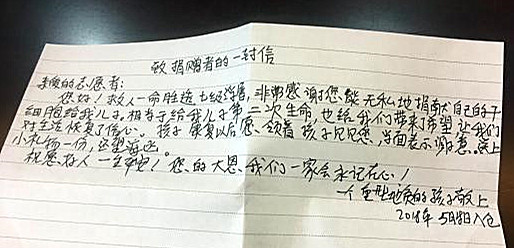 致捐赠者的一封信
亲爱的志愿者：
您好！救人一命胜造七级浮屠，非常感谢您能无私地捐献自己的干
细胞给我儿子，相当于给我儿子第二次生命，也给我们带来了希望，让我们
对生活恢复了信心。孩子康复以后愿领着孩子见见您，当面表示谢意。送上
小礼物一份，还望海函。
祝愿好人一生平安！您的大恩，我们一家会永记在心！
一个重型地贫的孩子敬上
2018年5月8日入仓